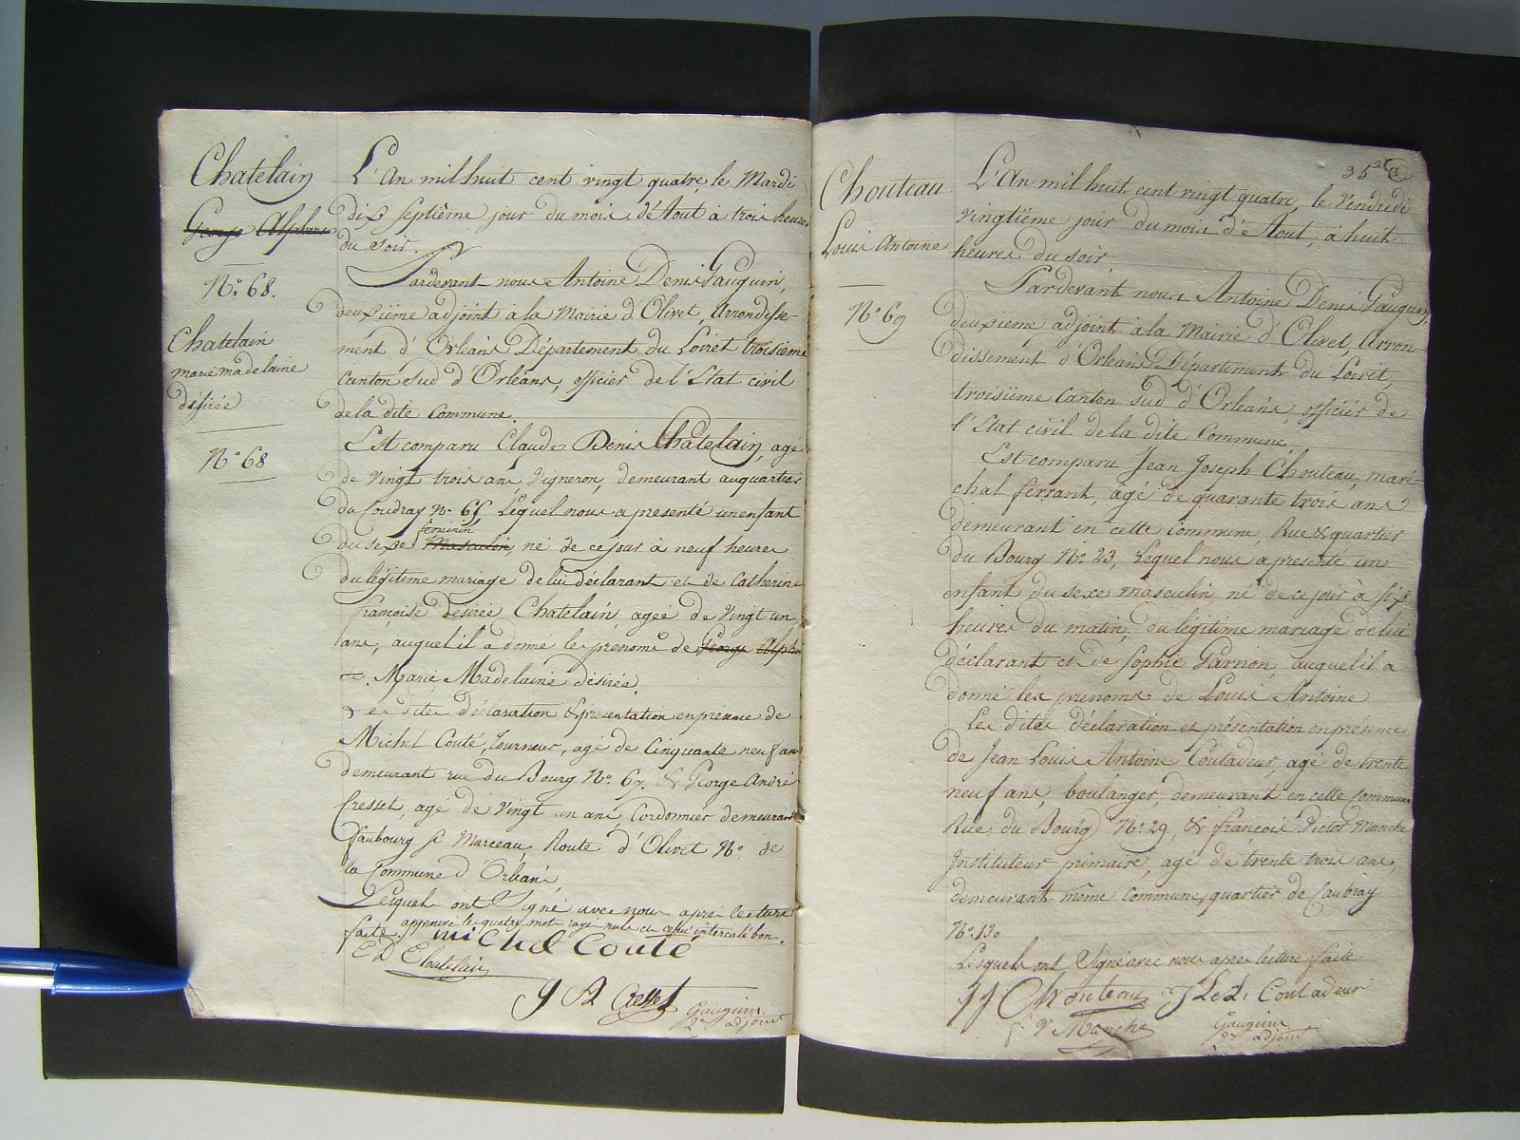 Chatelain
George Alphon
N.° 68.
Chatelain
marie madelaine
désirée
N.° 68
L'An mil huit cent vingt quatre, le Mardi
dix septième jour du mois d'Aout à trois heures
du soir.
Pardevant nous Antoine Denis Gauguin,
deuxième adjoint à la Mairie d'Olivet, Arrondisse-
ment d'Orléans Département du Loiret troisième
Canton sud d'Orléans, officier de l'Etat civil
de la dite Commune.
Est comparu Claude Denis Chatelain, agé
de vingt trois ans Vigneron, demeurant au quartier
du Coudray N.° 65, Lequel nous a presenté un enfant
feminin
du sexe Masculin, né de ce jour à neuf heures
du légitime mariage de lui déclarant et de Catherine
françoise desirée Chatelain, agée de vingt un
ans, auquel il a donné le prenome de George Alph
Marie Madelaine désirée.
Les dites déclaration & présentation en présence de
Michel Couté, Tourneur, agé de Cinquante neuf ans
demeurant rue du Bourg N.° 67. & George André
Cresset, agé de vingt un ans, Cordonnier demeurant
faubourg St Marceau Route d'Olivet N.° de
la Commune d'Orléans,
Lesquels ont Signé avec nous après lecture
faite. approuvé le quatre mot rayé nuls et intercalé bon.
michel Couté
C D Chatelain
g A Cresset
Gauguin
2e adjoint
35
Chouteau
Louis Antoine
N.° 69
L'An mil huit cent vingt quatre, le vendredi
vingtième jour du mois d'Aout, à huit
heures du soir
Pardevant nous Antoine Denis Gauguin,
deuxième adjoint à la Mairie d'Olivet Arron-
dissement d'Orléans Département du Loiret,
troisième Canton sud d'Orléans, officier de
l'Etat civil de la dite Commune.
Est comparu Jean Joseph Chouteau, maré-
chal ferrant, agé de quarante trois ans
demeurant en cette Commune, Rue & quartier
du Bourg N.° 23, Lequel nous a presenté un
enfant du sexe masculin, né de ce jour à six
heures du matin, du légitime mariage de lui
déclarant et de Sophie Garnon, auquel il a
donné les prenoms de Louis Antoine
Les dites déclaration et présentation en présence
de Jean Louis Antoine Coutadeur, agé de trente
neuf ans, boulanger, demeurant en cette Commune
Rue du Bourg N.° 29, & françois Victor Manche
Instituteur primaire, agé de trente trois ans,
demeurant même Commune, quartier de Caubray
N.° 130
Lesquels ont Signé avec nous après lecture faite
JJ Chouteau J L A Coutadeur
f V Manche
Gauguin
2e adjoint